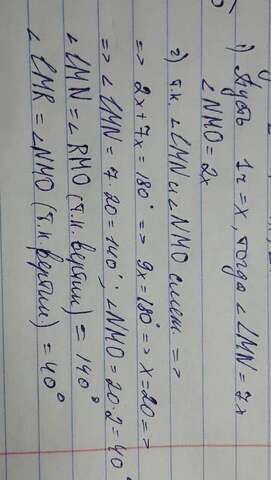 1) Пусть 1ч = x, тогда ∠LMN = 7x
∠NMO = 2x
2) т.к. ∠LMN и ∠NMO смеж. =>
=> 2x + 7x = 180° => 9x = 180° => x = 20 =>
=> ∠LMN = 7·20 = 140°; ∠NMO = 20·2 = 40°
∠LMN = ∠RMO (т.к. вертик) = 140°
∠LMR = ∠NMO (т.к. вертик) = 40°